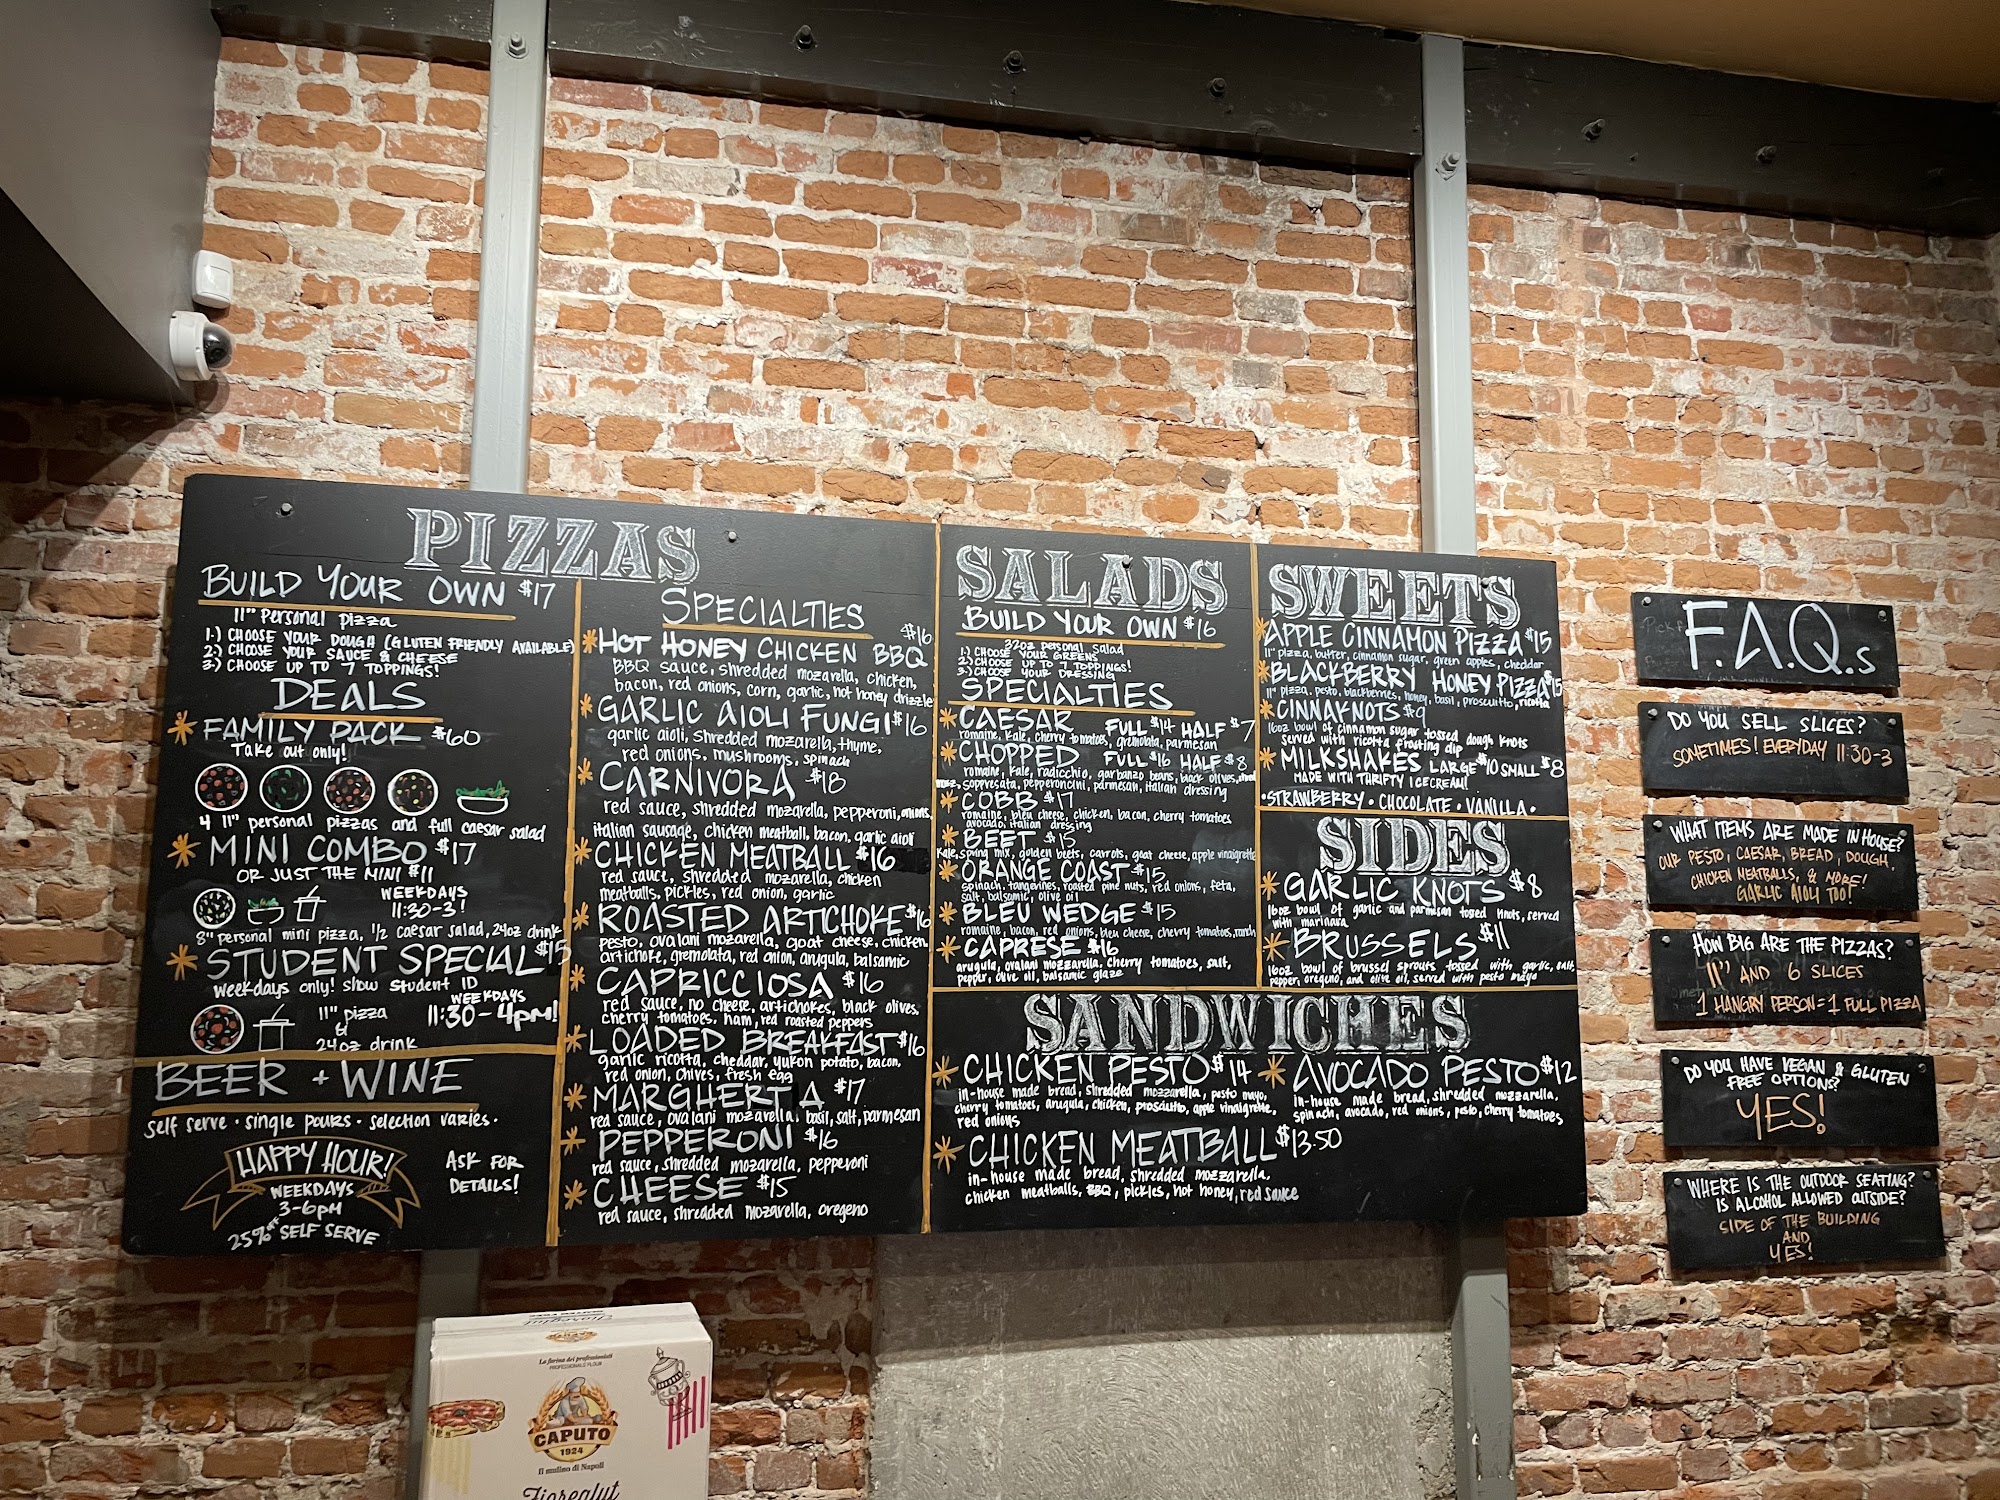 PIZZAS
BUILD YOUR OWN $17
11" personal pizza
1.) CHOOSE YOUR DOUGH (GLUTEN FRIENDLY AVAILABLE)
2.) CHOOSE YOUR SAUCE & CHEESE
3.) CHOOSE UP TO 7 TOPPINGS!
DEALS
* FAMILY PACK $60
Take out only!
4 11" personal pizzas and full caesar salad
* MINI COMBO $17
OR JUST THE MINI $11
WEEKDAYS
11:30-3!
8" personal mini pizza, 1/2 caesar salad, 24oz drink
* STUDENT SPECIAL $15
weekdays only! show student ID
WEEKDAYS
11:30-4pm!
11" pizza
&
24oz drink
BEER + WINE
self serve · single pours · selection varies.
HAPPY HOUR!
WEEKDAYS
3-6pm
25% OFF SELF SERVE
ASK FOR
DETAILS!
SPECIALTIES
* HOT HONEY CHICKEN BBQ $16
BBQ sauce, shredded mozarella, chicken,
bacon, red onions, corn, garlic, hot honey drizzle
* GARLIC AIOLI FUNGI $16
garlic aioli, shredded mozarella, thyme,
red onions, mushrooms, spinach
* CARNIVORA $18
red sauce, shredded mozarella, pepperoni, onions,
italian sausage, chicken meatball, bacon, garlic aioli
* CHICKEN MEATBALL $16
red sauce, shredded mozarella, chicken
meatballs, pickles, red onion, garlic
* ROASTED ARTICHOKE $16
pesto, ovalani mozarella, goat cheese, chicken,
artichoke, gremolata, red onion, arugula, balsamic
* CAPRICCIOSA $16
red sauce, no cheese, artichokes, black olives,
cherry tomatoes, ham, red roasted peppers
* LOADED BREAKFAST $16
garlic ricotta, cheddar, yukon potato, bacon,
red onion, chives, fresh egg
* MARGHERITA $17
red sauce, ovalani mozarella, basil, salt, parmesan
* PEPPERONI $16
red sauce, shredded mozarella, pepperoni
* CHEESE $15
red sauce, shredded mozarella, oregeno
SALADS
BUILD YOUR OWN $16
32oz personal salad
1.) CHOOSE YOUR GREENS
2.) CHOOSE UP TO 7 TOPPINGS!
3.) CHOOSE YOUR DRESSING
SPECIALTIES
* CAESAR FULL $14 HALF $7
romaine, kale, cherry tomatoes, gremolata, parmesan
* CHOPPED FULL $16 HALF $8
romaine, kale, radicchio, garbanzo beans, black olives, shred
mozz, soppresata, pepperoncini, parmesan, italian dressing
* COBB $17
romaine, bleu cheese, chicken, bacon, cherry tomatoes
avocado, italian dressing
* BEET $15
kale, spring mix, golden beets, carrots, goat cheese, apple vinaigrette
* ORANGE COAST $15
spinach, tangerines, roasted pine nuts, red onions, feta,
salt, balsamic, olive oil
* BLEU WEDGE $15
romaine, bacon, red onions, bleu cheese, cherry tomatoes, ranch
* CAPRESE $16
arugula, ovalani mozzarella, cherry tomatoes, salt,
pepper, olive oil, balsamic glaze
SWEETS
* APPLE CINNAMON PIZZA $15
11" pizza, butter, cinnamon sugar, green apples, cheddar
* BLACKBERRY HONEY PIZZA $15
11" pizza, pesto, blackberries, honey, basil, prosciutto, ricotta
* CINNAKNOTS $9
16oz bowl of cinnamon sugar tossed dough knots
served with ricotta frosting dip
* MILKSHAKES LARGE $10 SMALL $8
MADE WITH THRIFTY ICECREAM!
· STRAWBERRY · CHOCOLATE · VANILLA ·
SIDES
* GARLIC KNOTS $8
16oz bowl of garlic and parmesan tossed knots, served
with marinara
* BRUSSELS $11
16oz bowl of brussel sprouts tossed with garlic, salt,
pepper, oregeno, and olive oil, served with pesto mayo
SANDWICHES
* CHICKEN PESTO $14
in-house made bread, shredded mozzarella, pesto mayo,
cherry tomatoes, arugula, chicken, prosciutto, apple vinaigrette,
red onions
* AVOCADO PESTO $12
in-house made bread, shredded mozzarella,
spinach, avocado, red onions, pesto, cherry tomatoes,
* CHICKEN MEATBALL $13.50
in-house made bread, shredded mozzarella,
chicken meatballs, BBQ, pickles, hot honey, red sauce
F.A.Q.s
DO YOU SELL SLICES?
SOMETIMES! EVERYDAY 11:30-3
WHAT ITEMS ARE MADE IN HOUSE?
OUR PESTO, CAESAR, BREAD, DOUGH,
CHICKEN MEATBALLS, & MORE!
GARLIC AIOLI TOO!
HOW BIG ARE THE PIZZAS?
11" AND 6 SLICES
1 HANGRY PERSON = 1 FULL PIZZA
DO YOU HAVE VEGAN & GLUTEN
FREE OPTIONS?
YES!
WHERE IS THE OUTDOOR SEATING?
IS ALCOHOL ALLOWED OUTSIDE?
SIDE OF THE BUILDING
AND
YES!
Fioreglut
CAPUTO
La farina dei professionisti
PROFESSIONAL'S FLOUR
CAPUTO
1924
Il mulino di Napoli
Fioreglut